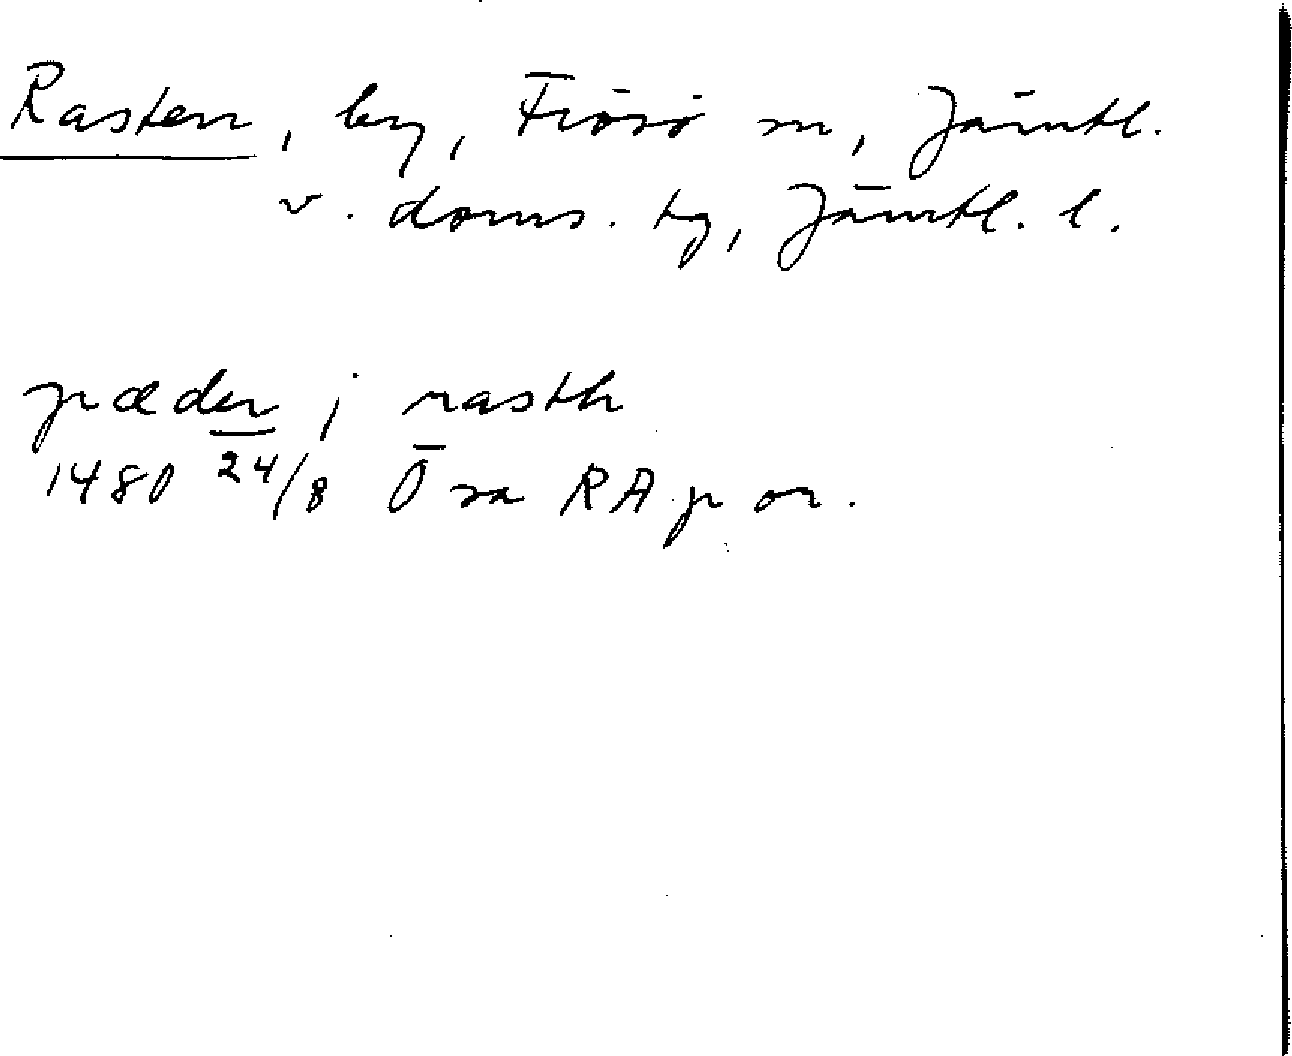 Rasten, by, Frösö sn, Jämtl.
v. doms. tg, Jämtl. l.
pæder j rasth
1480 24/8 Ö sa RAp or.